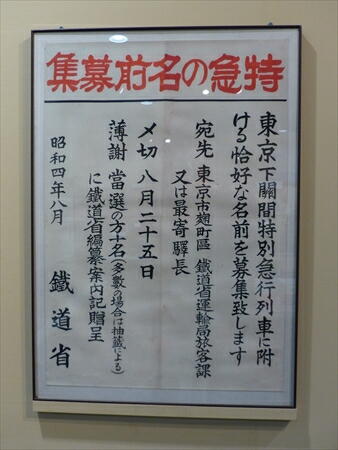 特急の名前募集
東京下關間特別急行列車に附
ける恰好な名前を募集致します
宛先 東京市麹町區 鐵道省運輸局旅客課
又は最寄驛長
〆切 八月二十五日
薄謝 當選の方十名(多數の場合は抽籤による)
に鐵道省編纂案内記贈呈
昭和四年八月 鐵道省